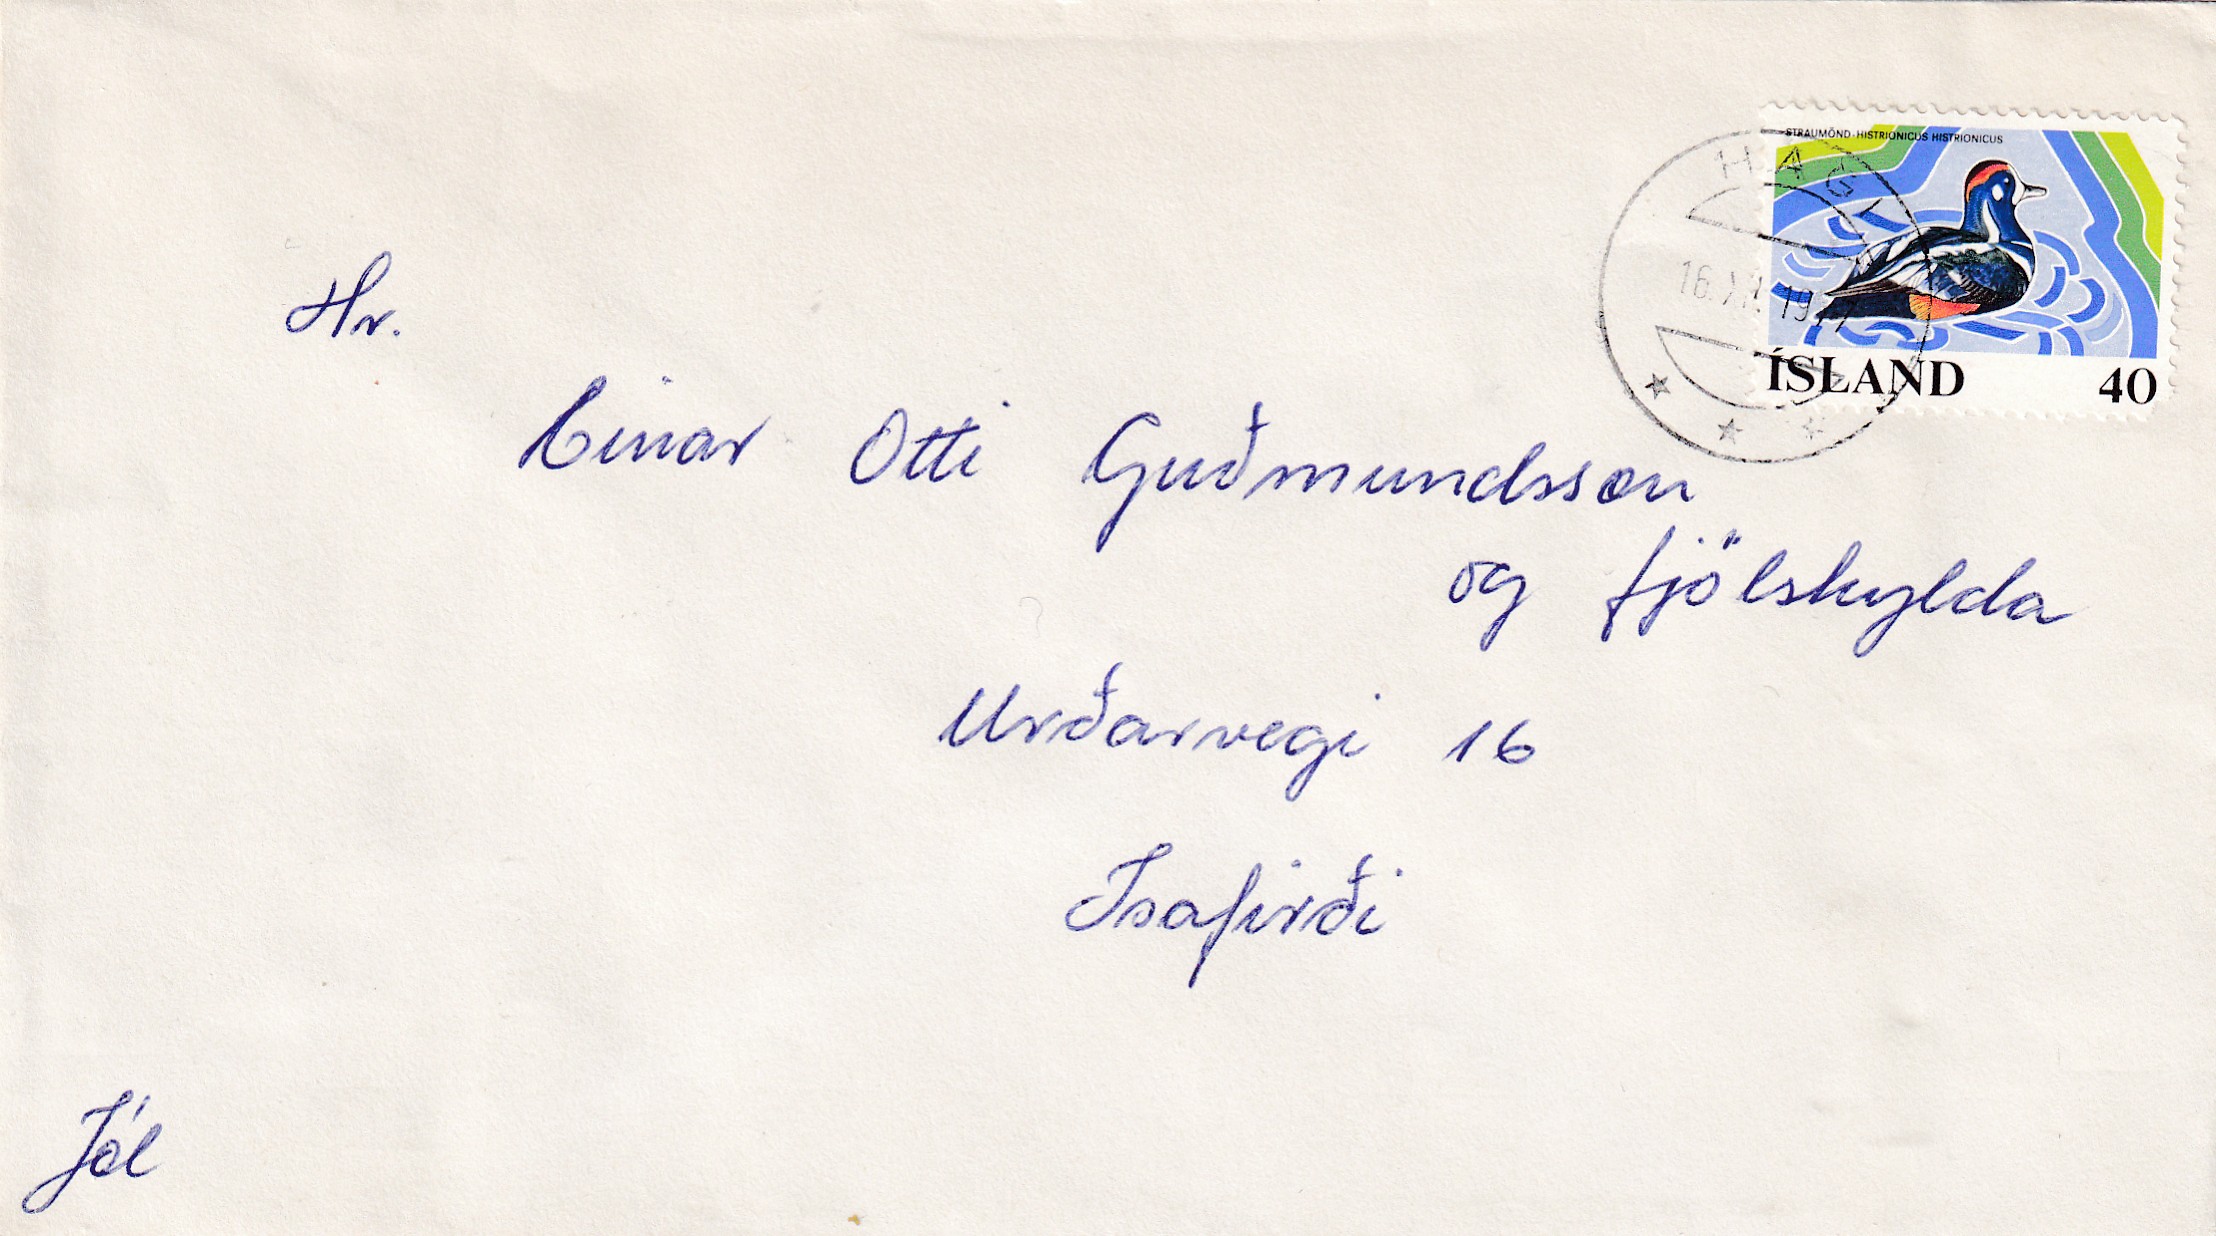 STRAUMÖND-HISTRIONICUS HISTRIONICUS
HAGI
16. XII. 1977
ÍSLAND 40
Hr.
Einar Otti Guðmundsson
og fjölskylda
Urðarvegi 16
Isafirði
Jól